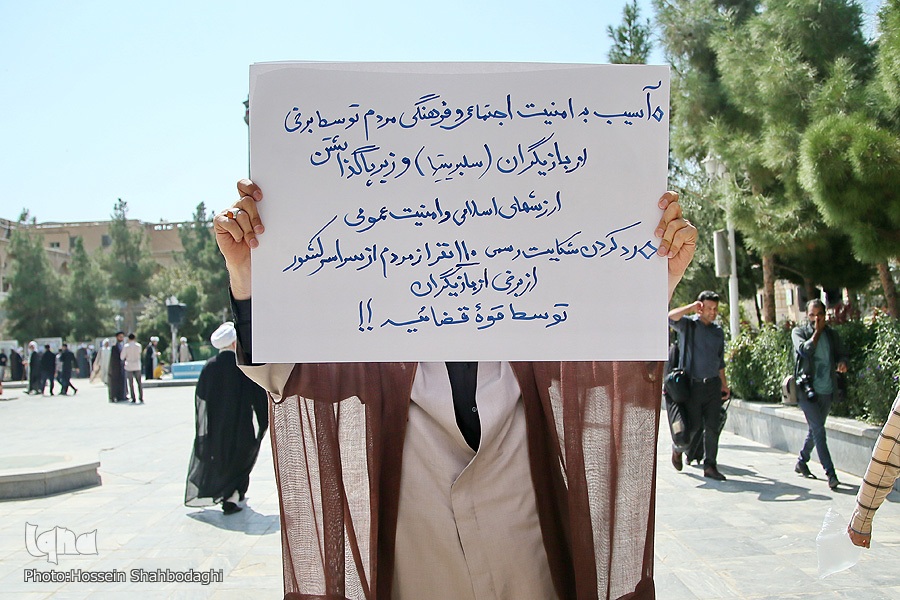 ◇ آسیب به امنیت اجتماعی و فرهنگی مردم توسط برخی
از بازیگران (سلبریتیها) و زیر پا گذاشتن
ارزشهای اسلامی و امنیت عمومی
◇ رد کردن شکایت رسمی ۱۱۰ نفر از مردم از سراسر کشور
از برخی از بازیگران
توسط قوهٔ قضائیه !!
iqna
Photo:Hossein Shahbodaghi